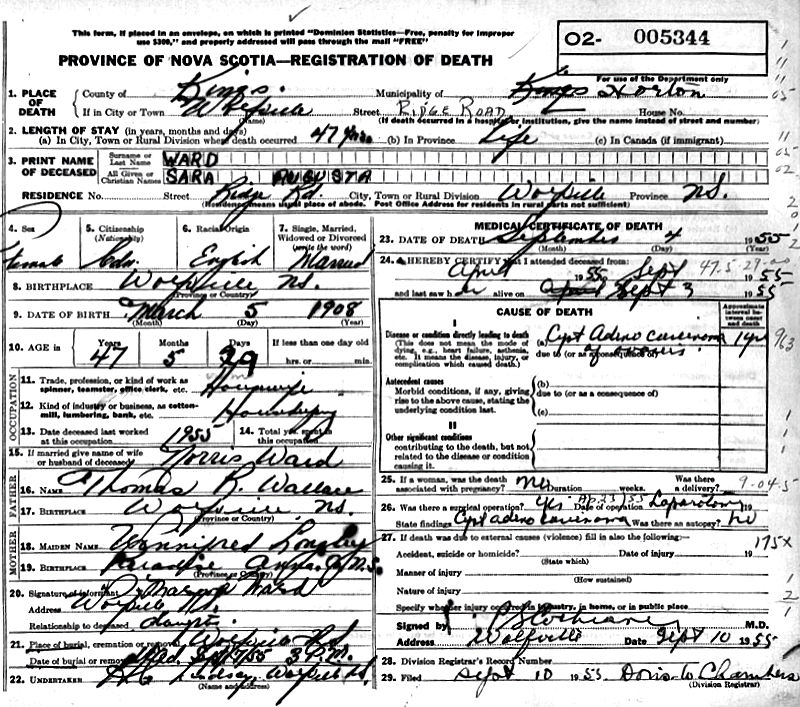 This form, if placed in an envelope, on which is printed "Dominion Statistics—Free, penalty for improper
use $300," and properly addressed will pass through the mail "FREE"
O2- 005344
PROVINCE OF NOVA SCOTIA—REGISTRATION OF DEATH
For use of the Department only
1. PLACE OF DEATH County of Kings Municipality of Kings Horton
If in City or Town Wolfville Street RIDGE ROAD House No.
(Name) (If death occurred in a hospital or institution, give the name instead of street and number)
2. LENGTH OF STAY (in years, months and days)
(a) In City, Town or Rural Division where death occurred 47 yrs (b) In Province Life (c) In Canada (if immigrant)
3. PRINT NAME OF DECEASED Surname or Last Name WARD
All Given or Christian Names SARA AUGUSTA
RESIDENCE No. Street Ridge Rd. City, Town or Rural Division Wolfville Province N.S.
(Residence means usual place of abode. Post Office Address for residents in rural parts not sufficient)
4. Sex Female
5. Citizenship (Nationality) Cdn.
6. Racial Origin English
7. Single, Married, Widowed or Divorced (write the word) Married
8. BIRTHPLACE Wolfville N.S.
(Province or Country)
9. DATE OF BIRTH March 5 1908
(Month) (Day) (Year)
10. AGE in Years 47 Months 5 Days 29 If less than one day
hrs. or min.
OCCUPATION
11. Trade, profession, or kind of work as spinner, teamster, office clerk, etc. Housewife
12. Kind of industry or business, as cotton-mill, lumbering, bank, etc. Housekeeping
13. Date deceased last worked at this occupation 1955 14. Total yrs. spent in this occupation
15. If married give name of wife or husband of deceased Norris Ward
FATHER
16. NAME Thomas R. Wallace
17. BIRTHPLACE Wolfville N.S.
(Province or Country)
MOTHER
18. MAIDEN NAME Winnifred Longley
19. BIRTHPLACE Paradise Anna. N.S.
(Province or Country)
20. Signature of informant Ward
Address Wolfville
Relationship to deceased daughter
21. Place of burial, cremation or removal Wolfville N.S.
Date of burial or removal Wed. Sept 7/55 3 P.M.
22. UNDERTAKER Lindsay Wolfville N.S.
(Name and address)
MEDICAL CERTIFICATE OF DEATH
23. DATE OF DEATH September 4 1955
(Month) (Day) (Year)
24. I HEREBY CERTIFY that I attended deceased from:
April 1955, Sept 1955
47.5-29-00
and last saw her alive on April Sept 3 1955
CAUSE OF DEATH
Approximate interval between onset and death
I
Disease or condition directly leading to death
(This does not mean the mode of dying, e.g., heart failure, asthenia, etc. It means the disease, injury, or complication which caused death.)
(a) Cyst Adeno carcinoma 1 yr
of ovaries
due to (or as a consequence of)
Antecedent causes
Morbid conditions, if any, giving rise to the above cause, stating the underlying condition last.
(b)
due to (or as a consequence of)
(c)
II
Other significant conditions
contributing to the death, but not related to the disease or condition causing it.
25. If a woman, was the death associated with pregnancy? no Duration weeks. Was there a delivery?
9-04-5
26. Was there a surgical operation? yes Date of operation Ap. 23/55 Laparotomy 19
State findings Cyst adeno carcinoma Was there an autopsy? no
27. If death was due to external causes (violence) fill in also the following:—
175x
Accident, suicide or homicide? Date of injury 19
(State which)
Manner of injury
(How sustained)
Nature of injury
Specify whether injury occurred in industry, in home, or in public place
Signed by Cochrane M.D.
Address Wolfville Date Sept 10 1955
28. Division Registrar's Record Number
29. Filed Sept 10 1955 Doris Chambers
(Division Registrar)